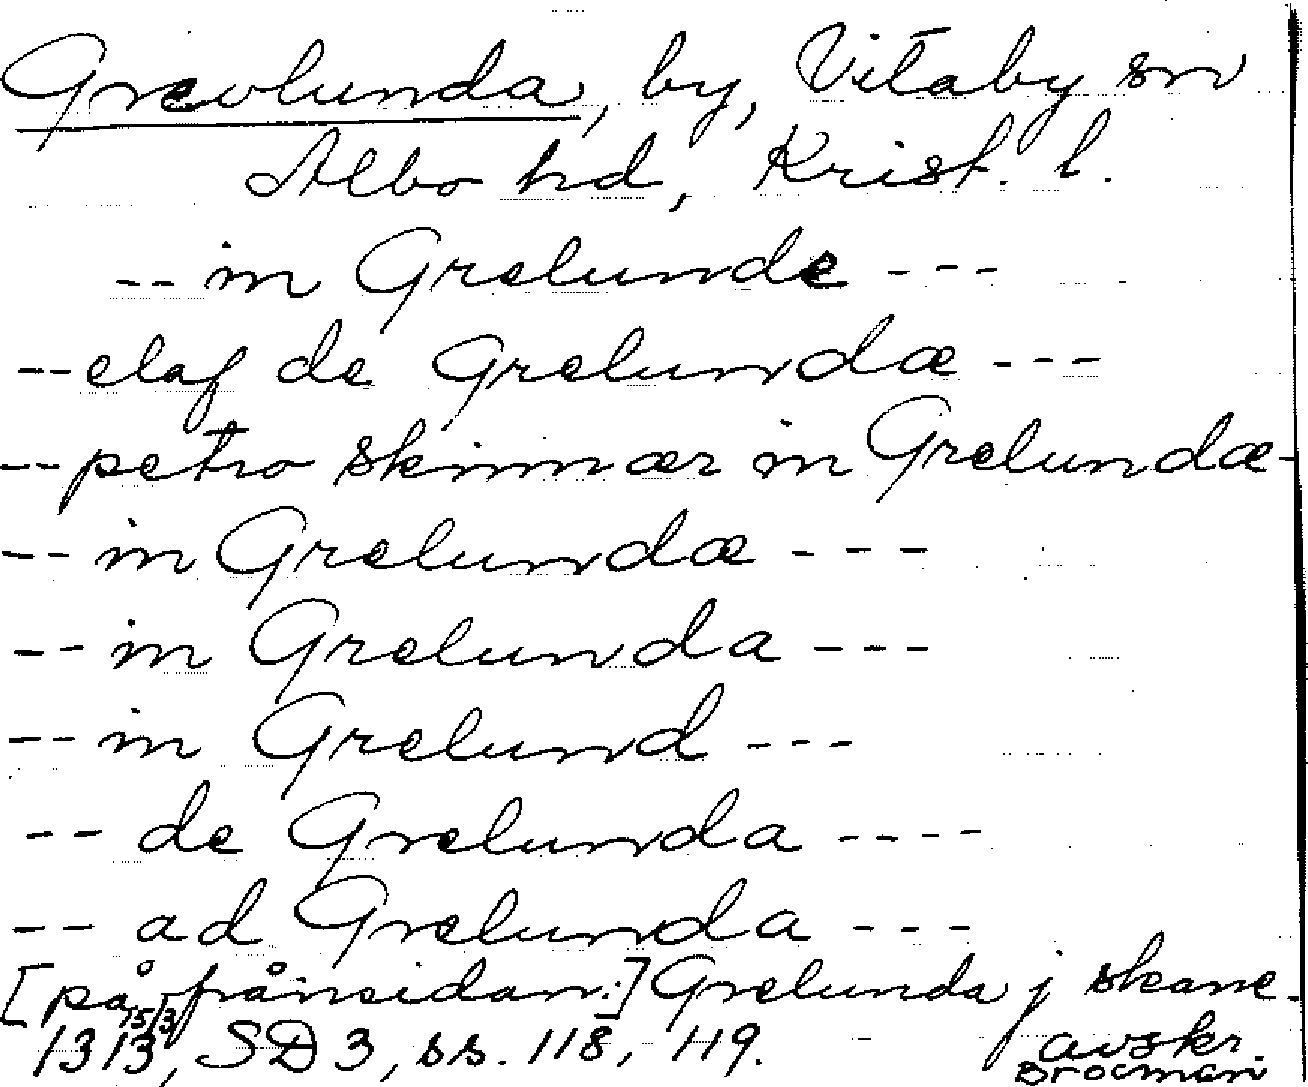 Grevlunda, by, Vitaby sn
Albo hd, Krist. l.
-- in Grelunde ---
-- elaf de Grelundæ ---
-- petro skinnær in Grelundæ -
-- in Grelundæ ---
-- in Grelunda ---
-- in Grelund ---
-- de Grelunda ----
-- ad Grelunda ---
[på frånsidan:] Grelunda j skane -
1313 15/3, SD 3, ss. 118, 119. avskr.
Brocman